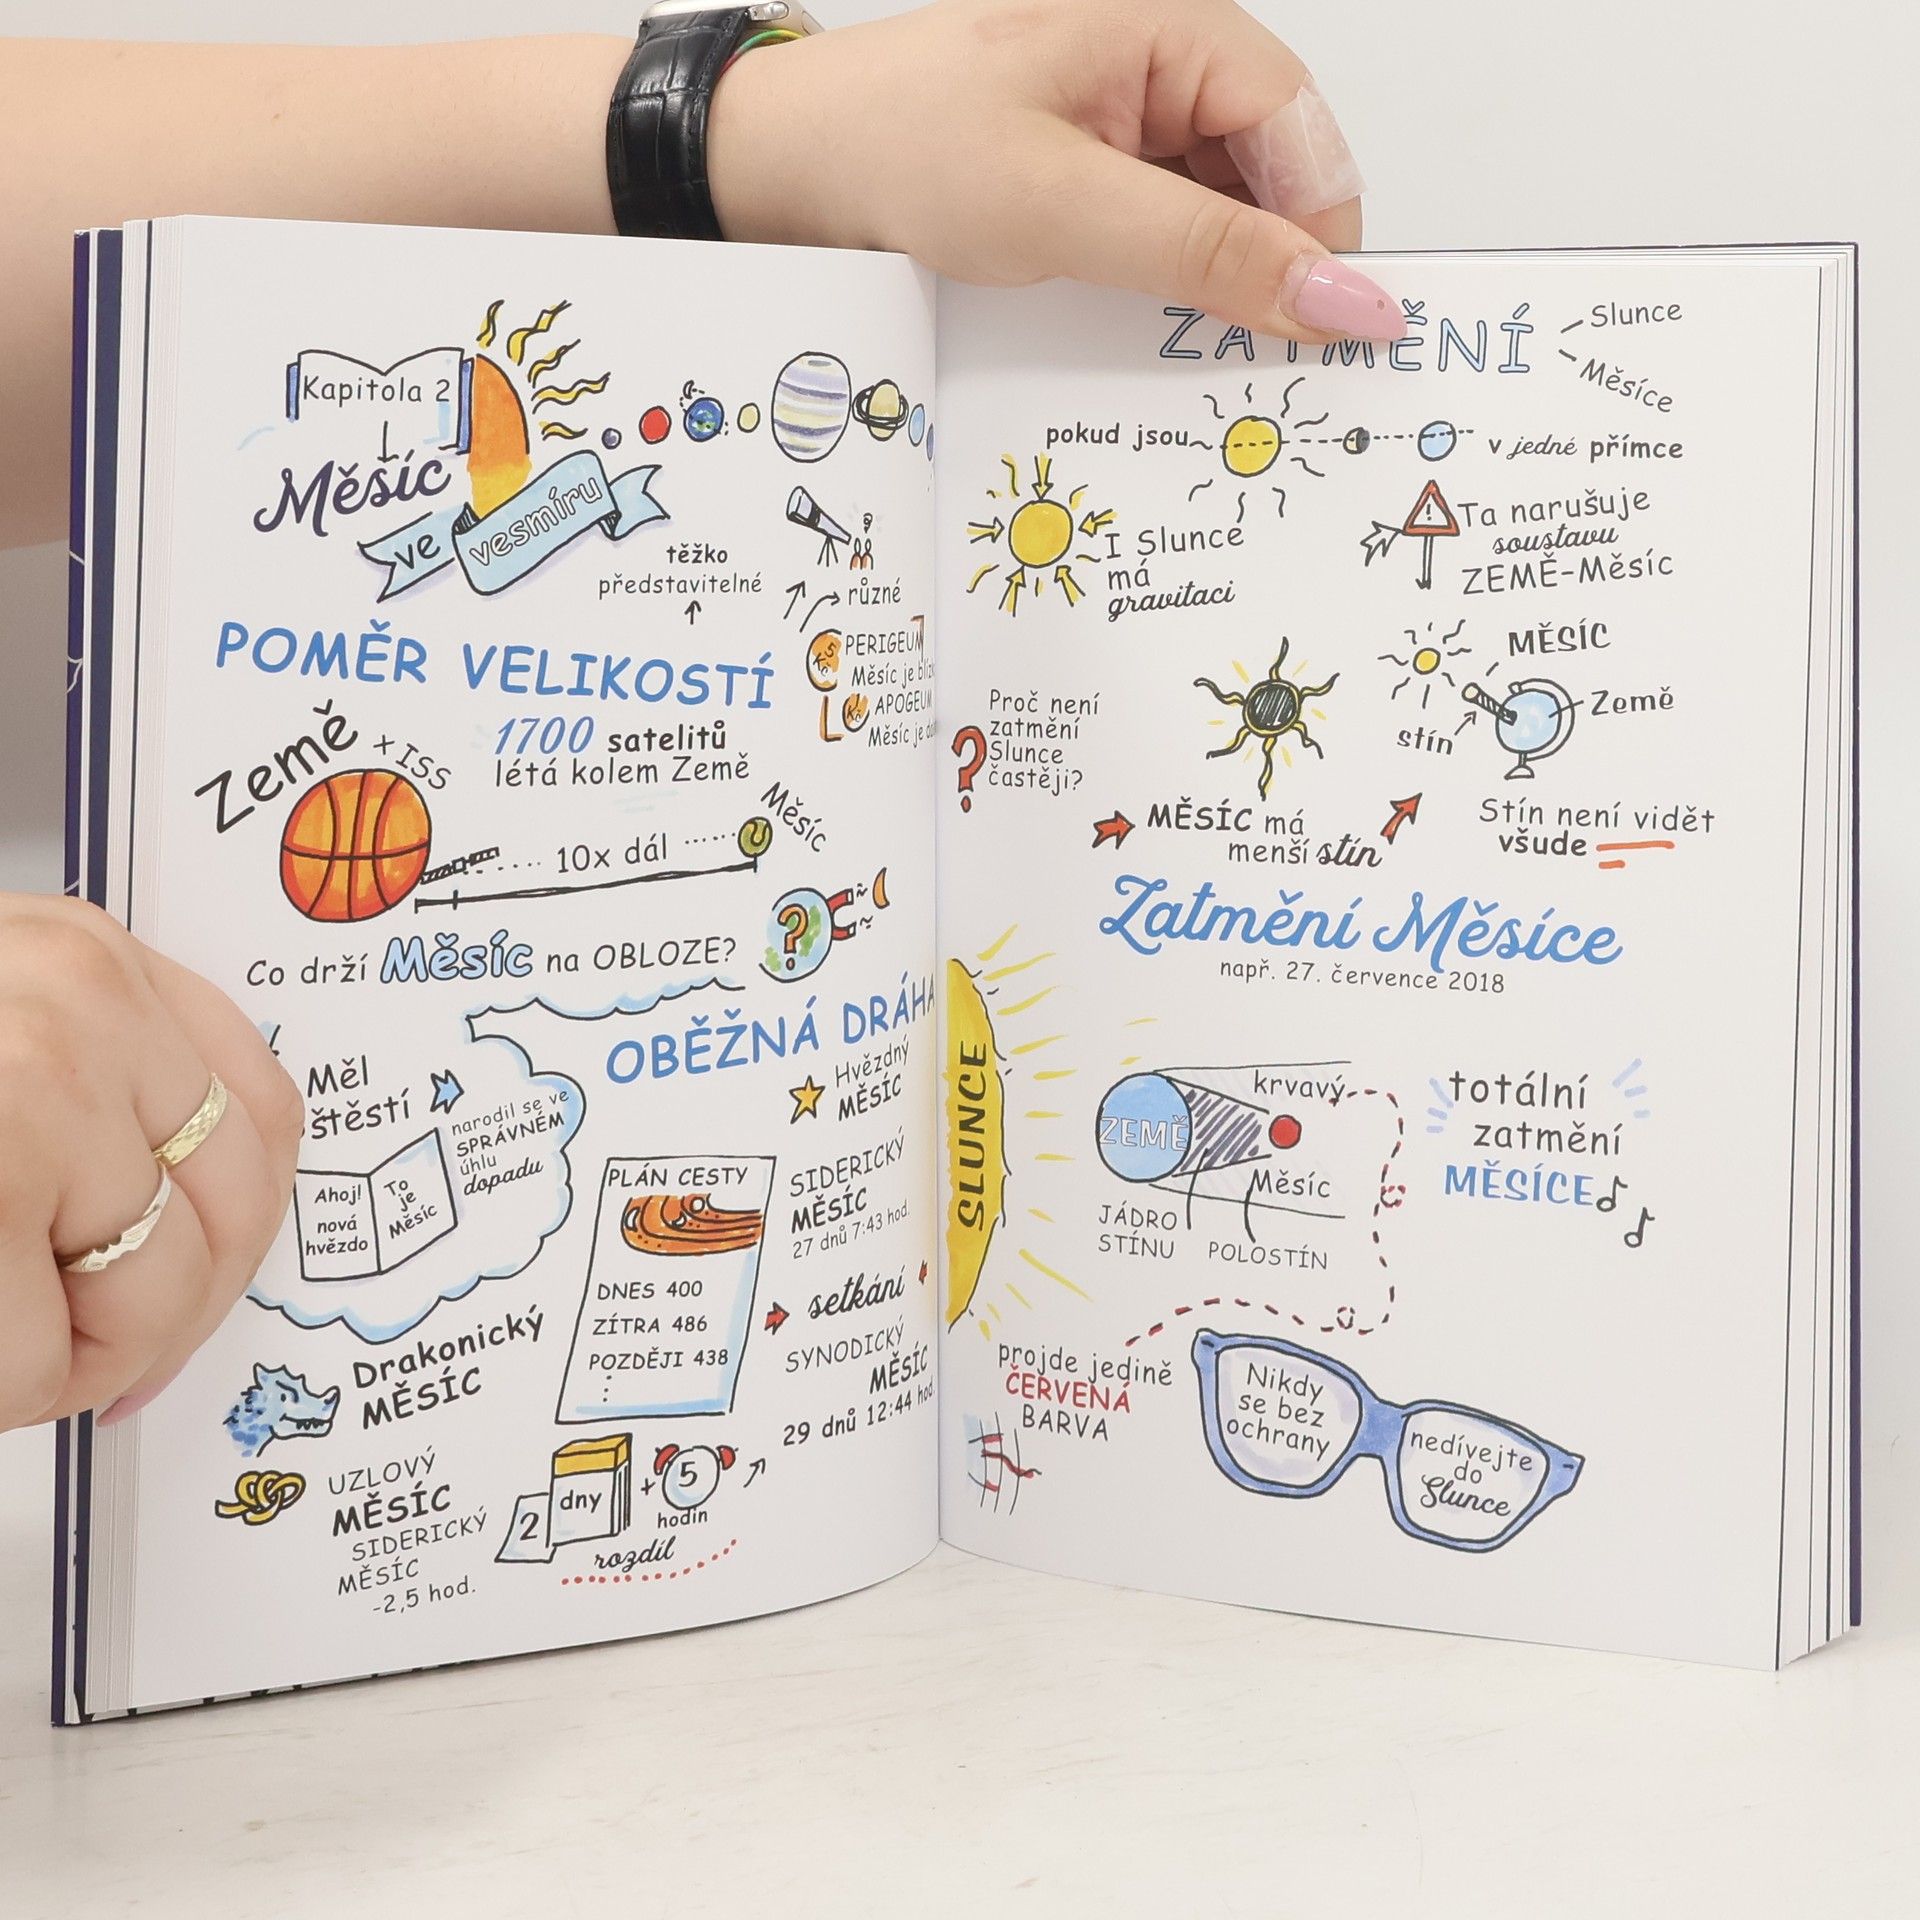 Kapitola 2
Měsíc
ve vesmíru
těžko
představitelné
různé
POMĚR VELIKOSTÍ
5
Kč
PERIGEUM
Měsíc je
Kč
APOGEUM
Měsíc je
1700 satelitů
létá kolem Země
Země
+ ISS
10x dál
Měsíc
Co drží Měsíc na OBLOZE?
?
Měl
štěstí
narodil se ve
SPRÁVNÉM
úhlu
dopadu
Ahoj!
nová
hvězdo
To
je
Měsíc
OBĚŽNÁ DRÁHA
Hvězdný
MĚSÍC
SIDERICKÝ
MĚSÍC
27 dnů 7:43 hod.
PLÁN CESTY
DNES 400
ZÍTRA 486
POZDĚJI 438
setkání
SYNODICKÝ
MĚSÍC
29 dnů 12:44 hod.
Drakonický
MĚSÍC
UZLOVÝ
MĚSÍC
SIDERICKÝ
MĚSÍC
-2,5 hod.
2
dny
+
5
hodin
rozdíl
ZATMĚNÍ
Slunce
Měsíce
pokud jsou
v jedné přímce
I Slunce
má
gravitaci
!
Ta narušuje
soustavu
ZEMĚ-Měsíc
?
Proč není
zatmění
Slunce
častěji?
MĚSÍC
Země
stín
MĚSÍC má
menší stín
Stín není vidět
všude
Zatmění Měsíce
např. 27. července 2018
SLUNCE
ZEMĚ
krvavý
Měsíc
JÁDRO
STÍNU
POLOSTÍN
totální
zatmění
MĚSÍCE
projde jedině
ČERVENÁ
BARVA
Nikdy
se bez
ochrany
nedívejte
do
Slunce